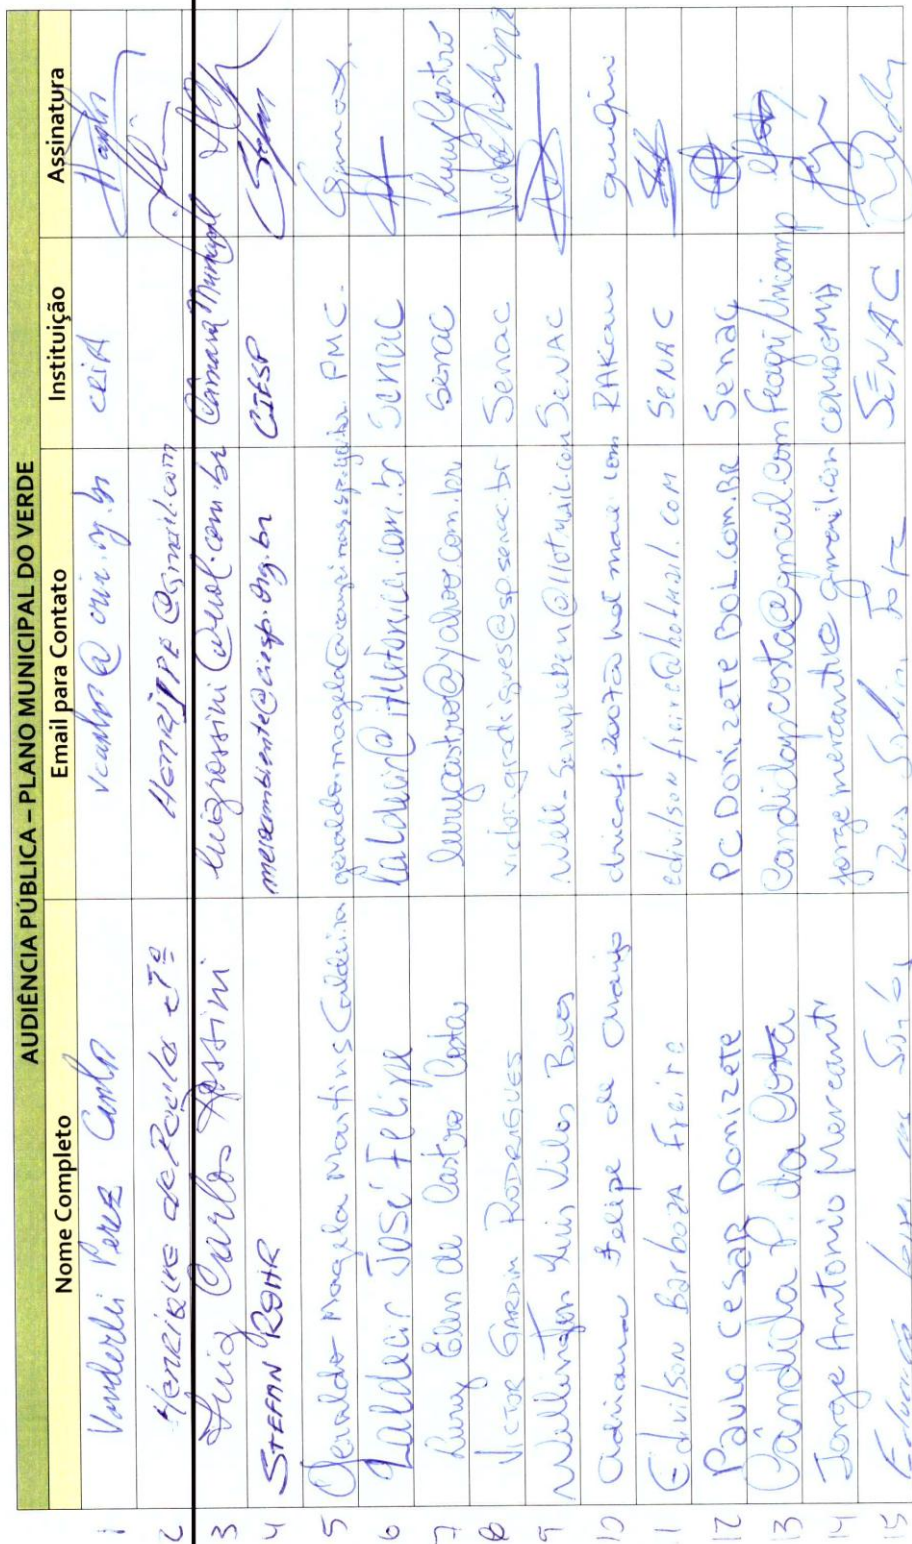 AUDIÊNCIA PÚBLICA – PLANO MUNICIPAL DO VERDE
Nome Completo Email para Contato Instituição Assinatura
1 Vanderlei Perez Canhos vcanhos@cria.org.br CRIA
2 Henrique de Paula HENRIPPE@gmail.com
3 Luiz Carlos Rossini luizrossini@uol.com.br Câmara Municipal
4 STEFAN ROHR meioambiente@ciesp.org.br CIESP
5 Geraldo Magela Martins Caldeira PMC.
6 Valdecir José Felipe Senac
7 Lury Elen de Castro Costa lurycastro@yahoo.com.br Senac Lury Castro
8 VICTOR GARDIN RODRIGUES victor.grodrigues@sp.senac.br Senac
9 Wellington Luis Vilas Boas SENAC
10 Adriana Felipe de Araujo
11 Edvilson Barboza Freire edvilsonfreire@hotmail.com SENAC
12 Paulo CESAR DONIZETE PC DONIZETE BOL.COM.BR Senac
13 Cândida P. da Costa candidapcosta@gmail.com Feagri/Unicamp
14 Jorge Antonio Mercanti jorge mercanti@gmail.com COMDEMA
15 SENAC